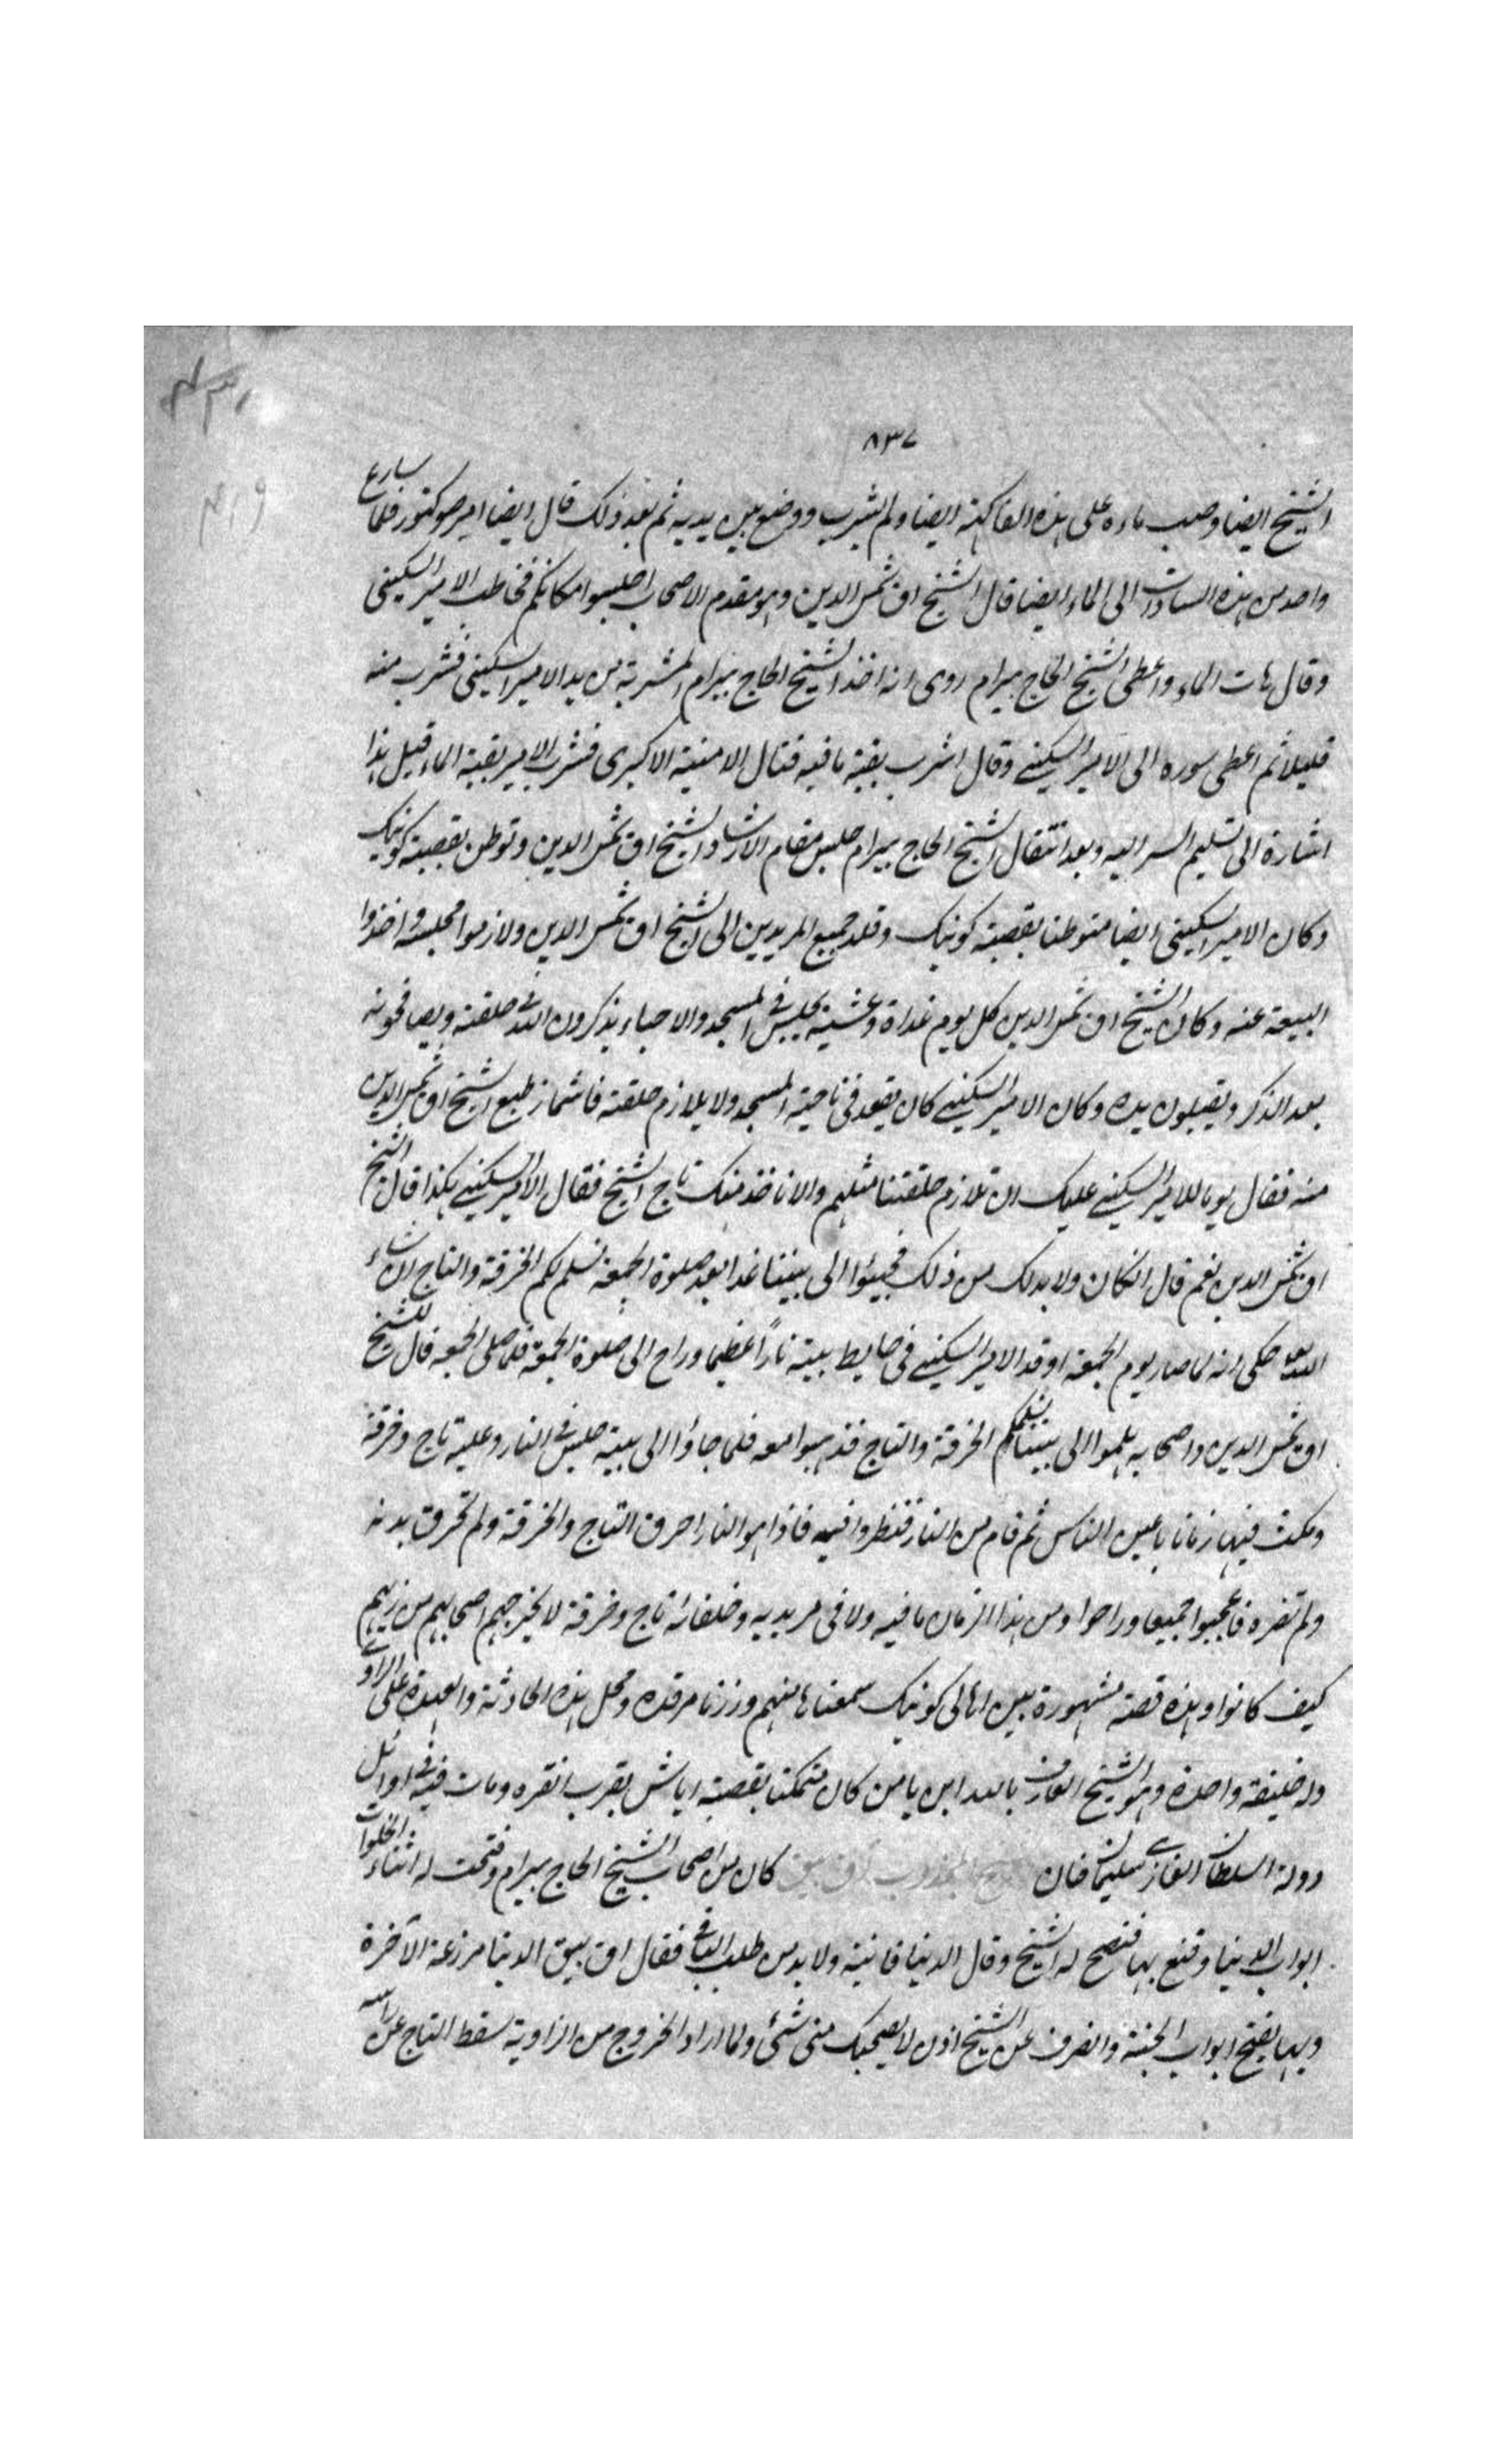 ٨٣٧
الشيخ ايضا وصب ماءه على هذه الفاكهة ايضا ولم يشرب ووضع بين يديه ثم بعد ذلك قال ايضا امير صو كتور فلما سارع
واحد من هذه السادات الى الماء ايضا قال الشيخ اق شمس الدين وهو مقدم الاصحاب اجلسوا مكانكم فخاطب الامير السكيني
وقال هات الماء واعطى الشيخ الحاج بيرام روى انه اخذ الشيخ الحاج بيرام المشربة من يد الامير السكيني فشرب منه
قليلا ثم اعطى سوره الى الامير السكيني وقال اشرب بقية ما فيه فتنال الامنية الاكبرى فشرب الامير بقية الماء قيل هذا
اشارة الى تسليم السر اليه وبعد انتقال الشيخ الحاج بيرام جلس مقام الارشاد الشيخ اق شمس الدين وتوطن بقصبة كونيك
وكان الامير السكيني ايضا متوطنا بقصبة كونيك وقلد جميع المريدين الى الشيخ اق شمس الدين ولازموا مجلسه واخذوا
البيعة عنه وكان الشيخ اق شمس الدين كل يوم غداة وعشية يجلس في المسجد والاحباء يذكرون الله في حلقته ويصافحونه
بعد الذكر ويقبلون يده وكان الامير السكيني كان يقعد في ناحية المسجد ولا يلازم حلقته فاشمأز طبع الشيخ اق شمس الدين
منه فقال يوما للامير السكيني عليك ان تلازم حلقتنا مثلهم والا ناخذ منك تاج الشيخ فقال الامير السكيني هكذا قال الشيخ
اق شمس الدين نعم قال انكان ولا بد لك من ذلك فجيئوا الى بيتنا غدا بعد صلوة الجمعة نسلم لكم الخرقة والتاج ان شاء
الله تعالى حكى انه لما صار يوم الجمعة اوقد الامير السكيني في حايط بيته نارًا عظيما وراح الى صلوة الجمعة فلما صلى الجمعه قال للشيخ
اق شمس الدين واصحابه هلموا الى بيتنا نسلمكم الخرقة والتاج فذهبوا معه فلما جاؤا الى بيته جلس في النار وعليه تاج وخرقة
ومكث فيها زمانا باعين الناس ثم قام من النار فنظروا فيه فاذا هو النار احرق التاج والخرقة ولم تحرق بدنه
ولم تضره فاعجبوا جميعا وراحوا ومن هذا الزمان ما فيه ولا في مريديه وخلفائه تاج وخرقة لا يخرجهم اصحابهم من زيهم
كيف كانوا وهذه قصة مشهورة بين اهالى كونيك سمعناها منهم وزرنا مرقده ومحل هذه الحادثة والعهدة على الراوى
وله خليفة واحدة وهو الشيخ العارف بالله ابن يامن كان متمكنا بقصبة اياش بقرب انقره ومات فيه في اوائل
دولة السلطان الغازى سليمان خان كان من اصحاب الشيخ الحاج بيرام وفتحت له اثناء الخلوات
ابواب الدينا وقنع بها فنصح له الشيخ وقال الدينا فانية ولا بد من طلب الباقى فقال اق بيق الدينا مزرعة الآخرة
وبها يفتح ابواب الجنة وانصرف عن الشيخ اذن لا يصحبك منى شئ ولما اراد الخروج من الزاوية سقط التاج عن راسه